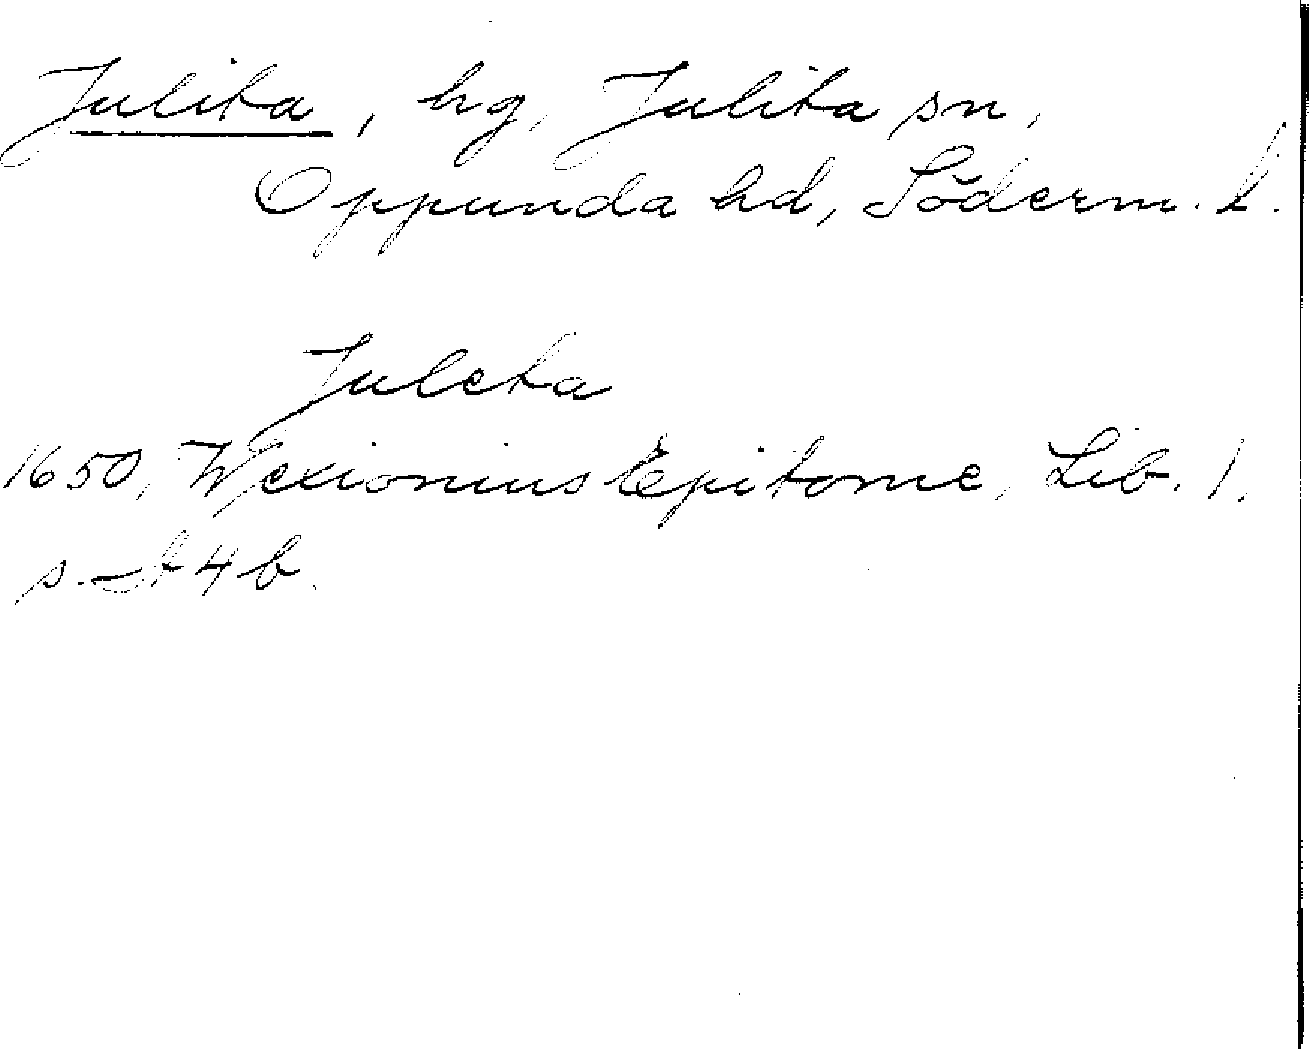 Julita, hg, Julita sn,
Oppunda hd, Söderm. l.
Juleta
1650, Wexionius Epitome, Lib. 1.
s. 4 b.